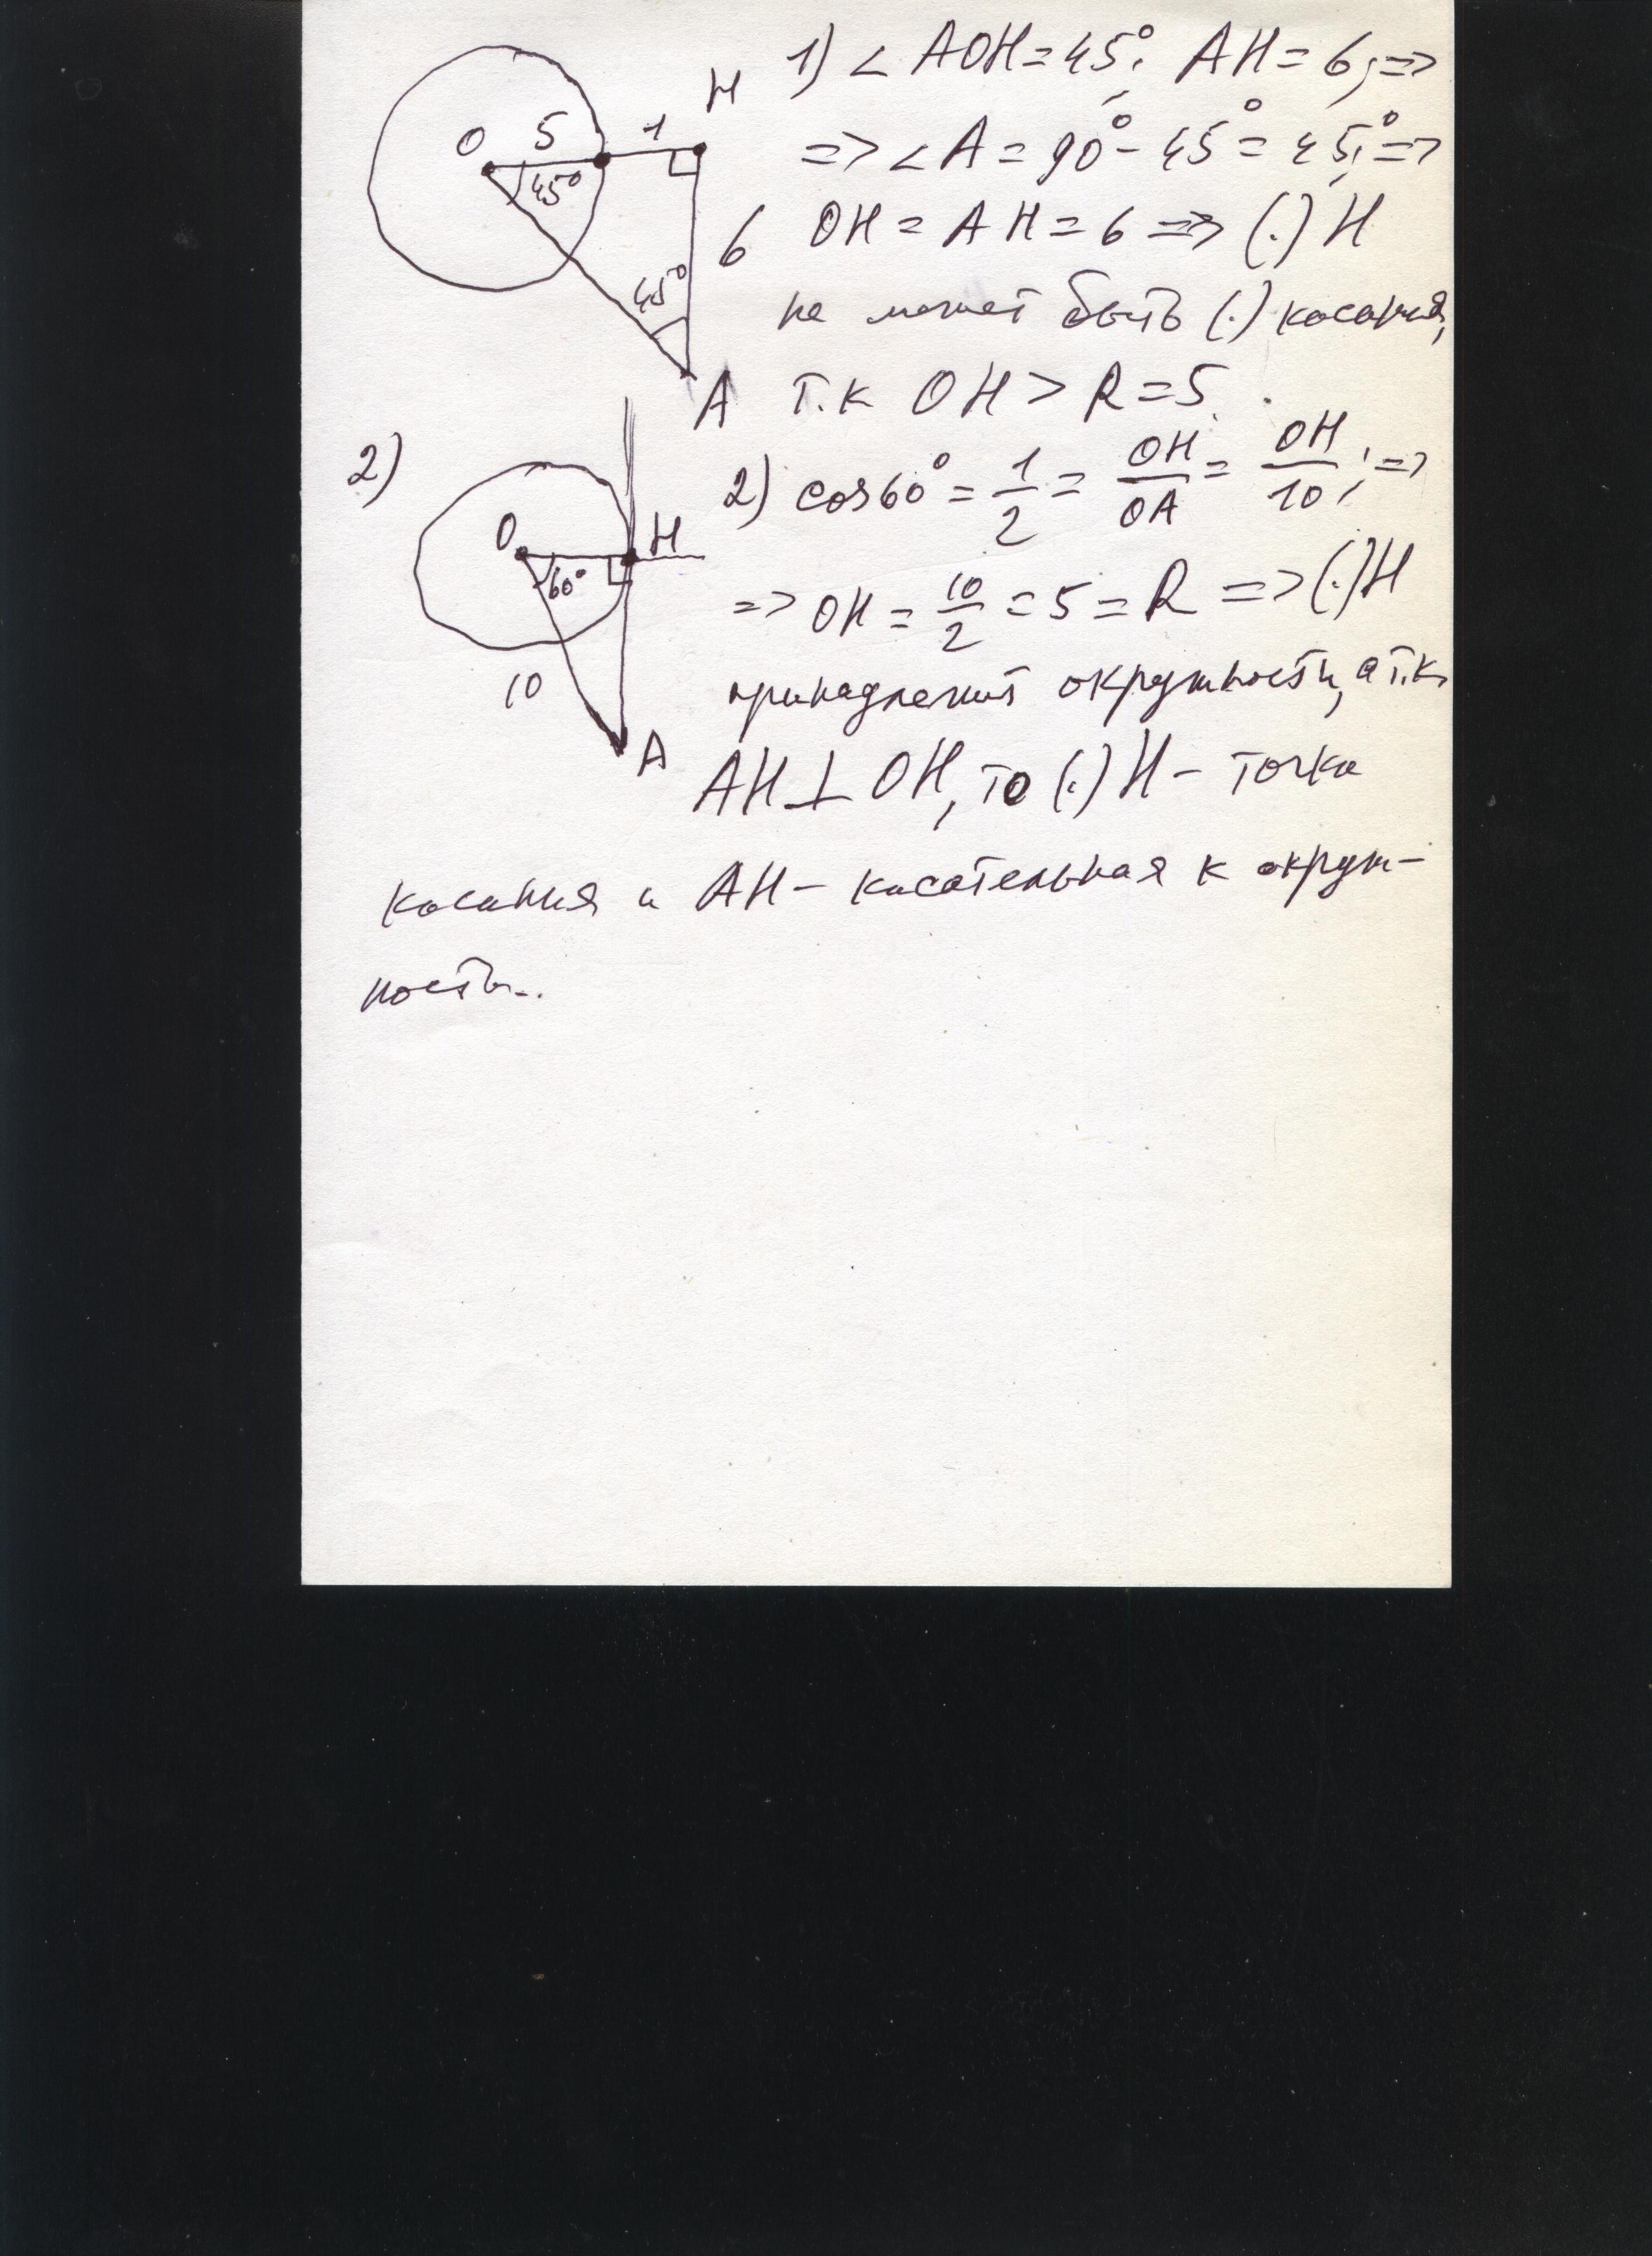 1) ∠ AOH = 45°; AH = 6; =>
=> ∠ A = 90° - 45° = 45°; =>
OH = AH = 6 => (.) H
не может быть (.) касания,
т.к OH > R = 5.
O 5 1 H
45°
6
45°
A
2)
2) cos 60° = 1/2 = OH/OA = OH/10; =>
=> OH = 10/2 = 5 = R => (.) H
принадлежит окружности, а т.к.
AH ⊥ OH, то (.) H - точка
O H
60°
10
A
касания и AH - касательная к окруж-
ности.